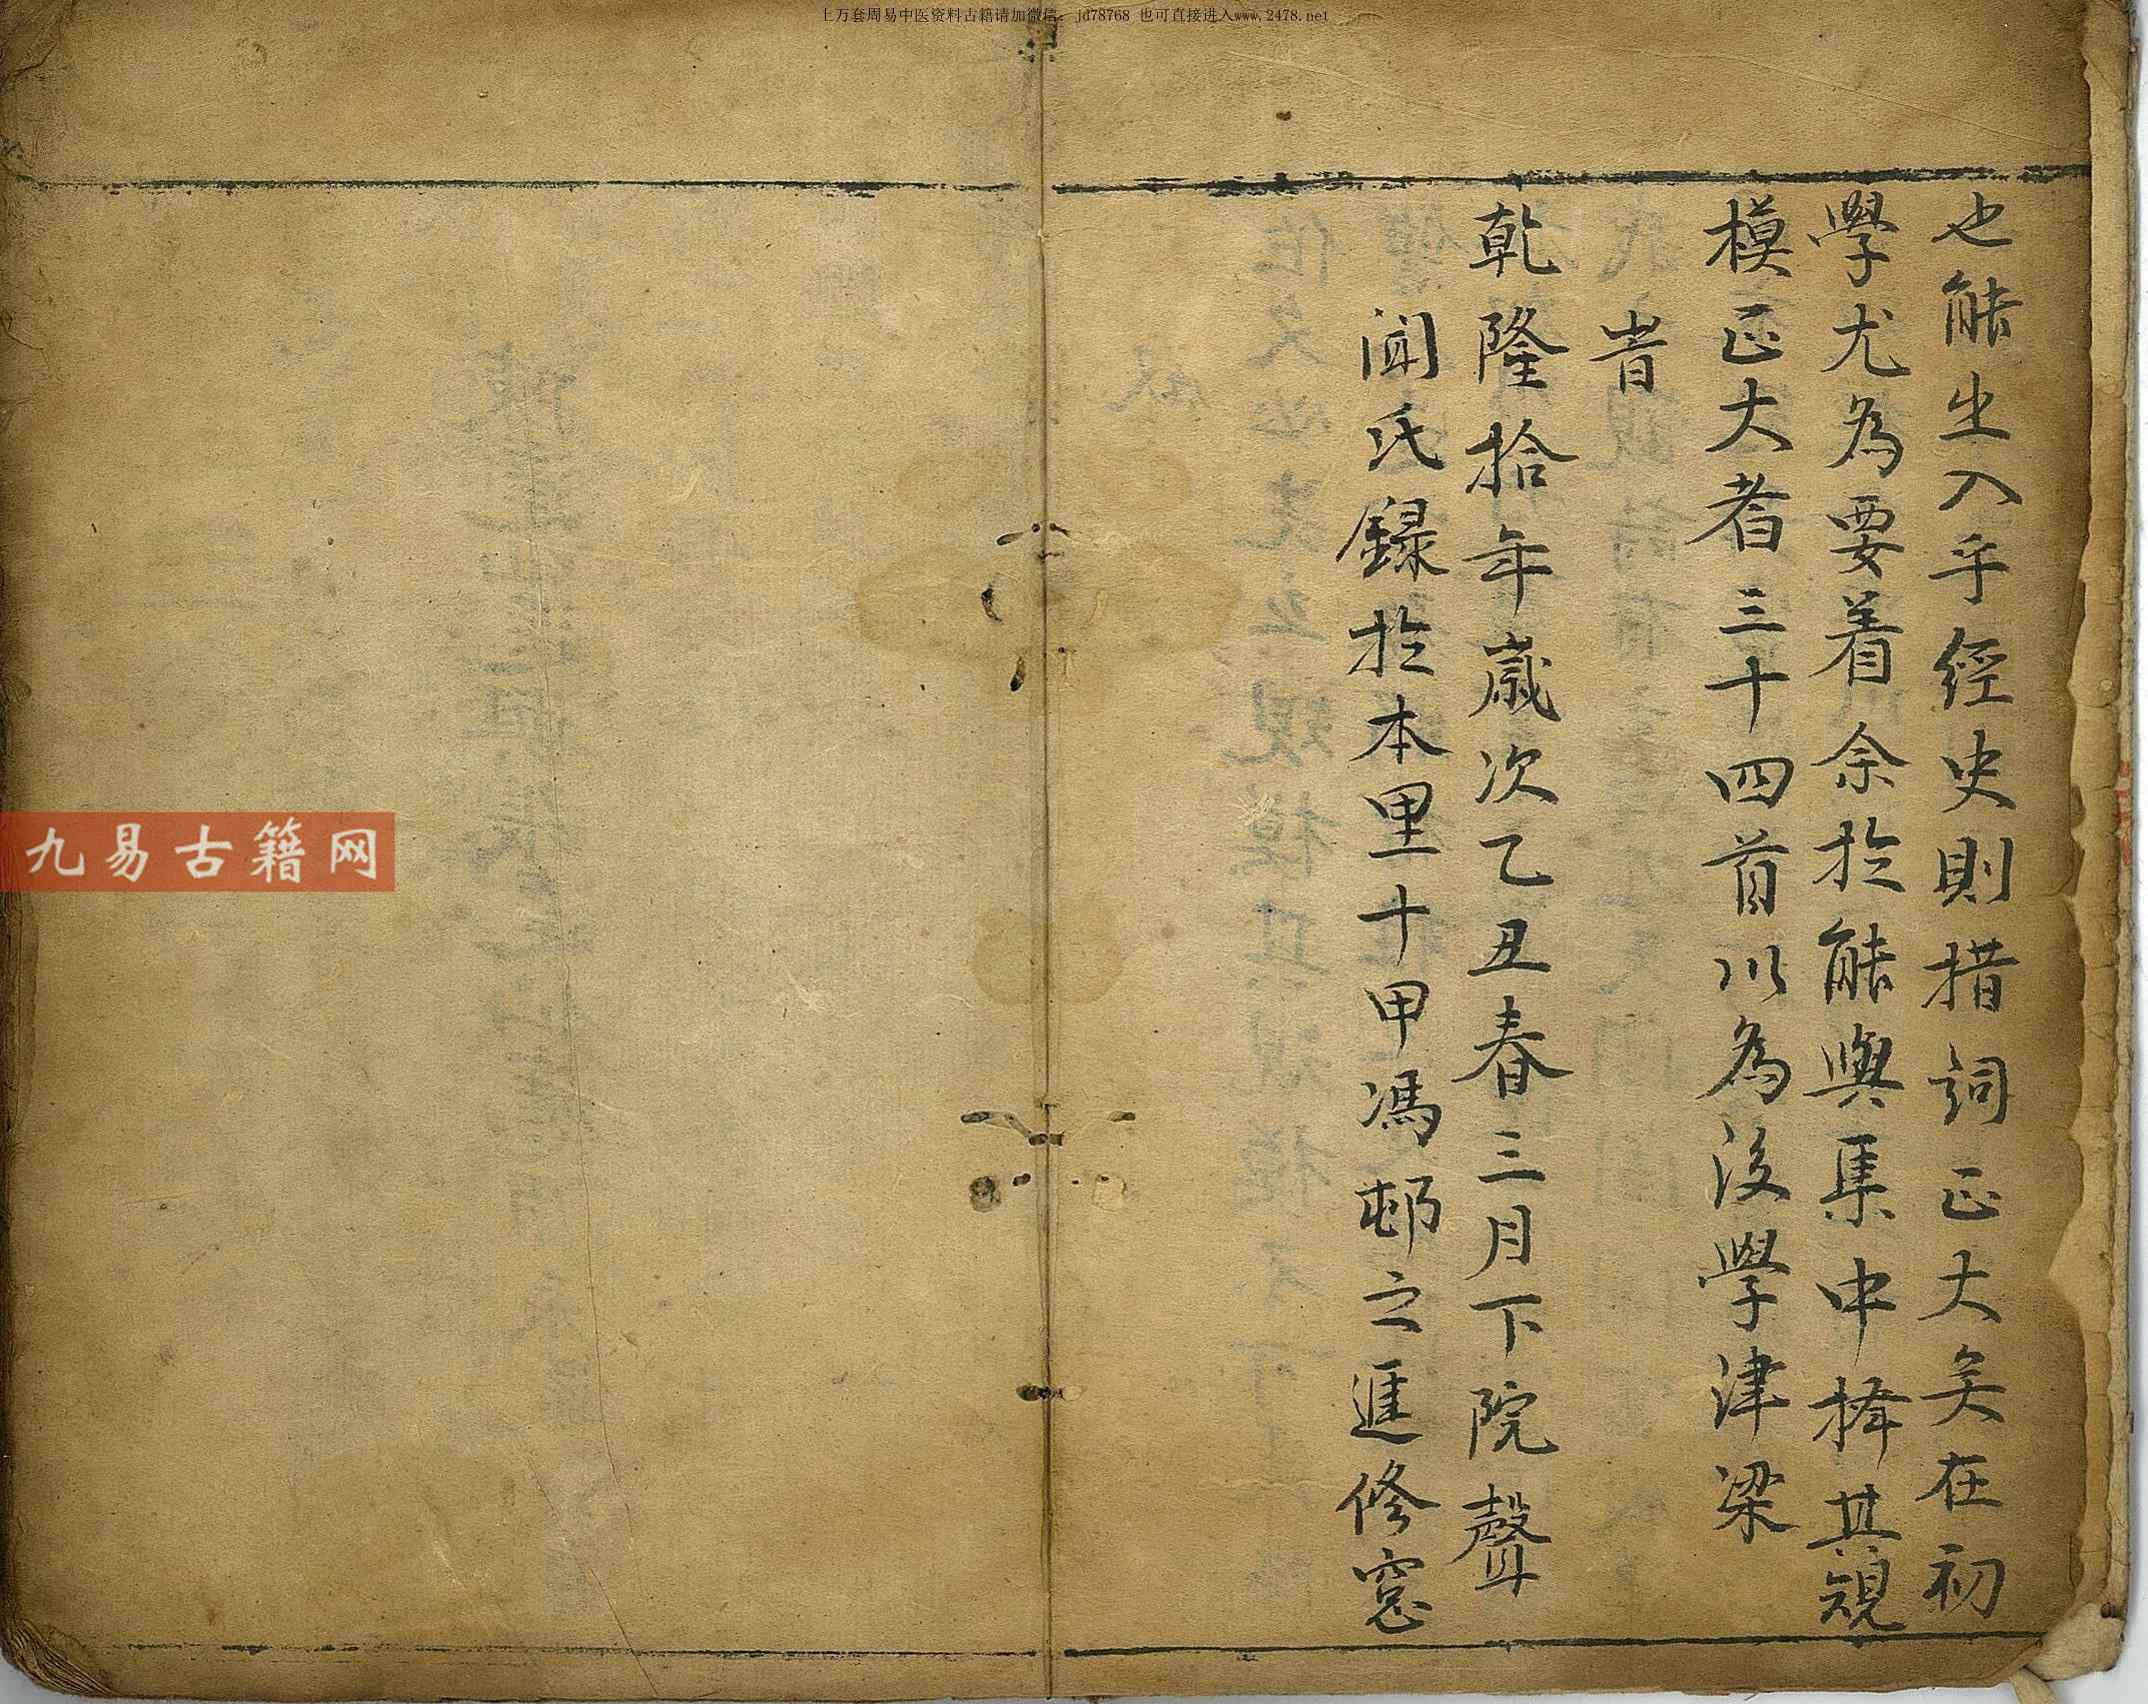 上万套周易中医资料古籍请加微信: jd78768 也可直接进入www.2478.net
也能出入乎經史則措詞正大矣在初
學尤為要着余於能與集中擇其規
模正大者三十四首以為後學津梁
旹
乾隆拾年歲次乙丑春三月下院聲
聞氏錄於本里十甲馮邨之進修窓
九易古籍网